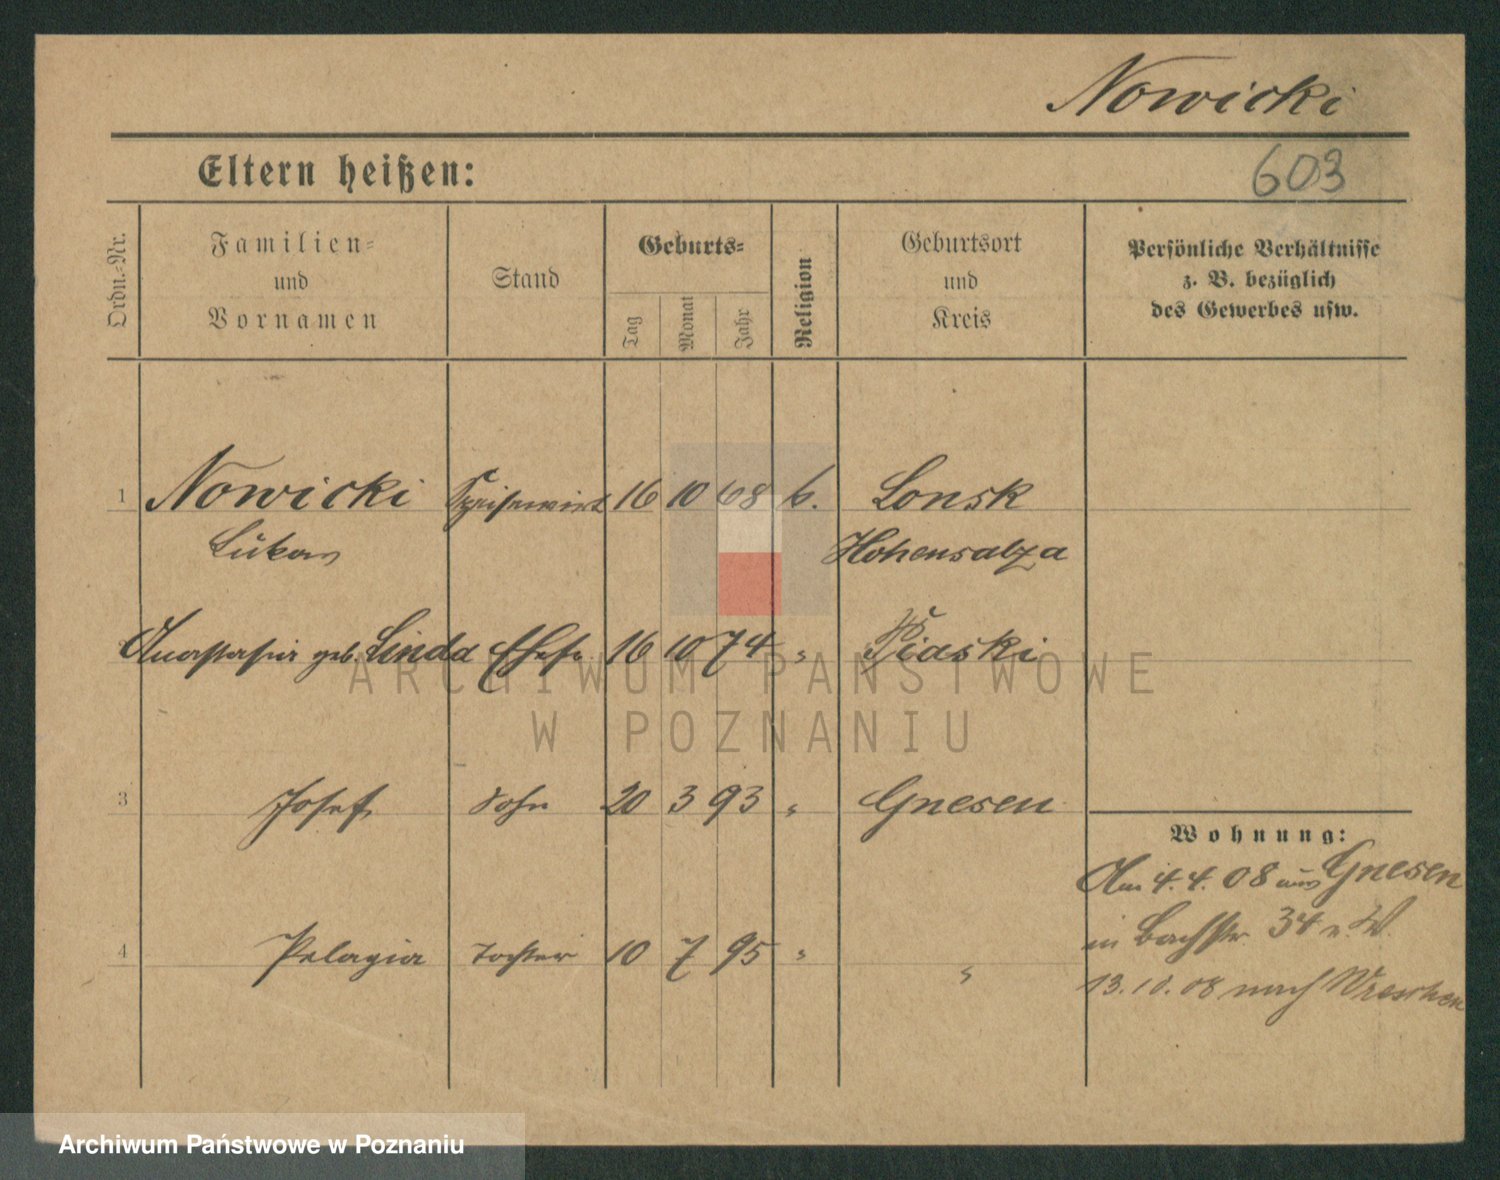 Nowicki
Eltern heißen:
603
Ordn.-Nr.
Familien-
und
Vornamen
Stand
Geburts-
Tag
Monat
Jahr
Religion
Geburtsort
und
Kreis
Persönliche Verhältnisse
z. B. bezüglich
des Gewerbes usw.
1 Nowicki Speisewirt 16 10 68 k. Lonsk
Lukas Hohensalza
Anastasia geb. Linda Ehefr. 16 10 74 " Piaski
3 Josef Sohn 20 3 93 " Gnesen
Wohnung:
Am 4.4.08 aus Gnesen
in Bachstr. 34 v. W.
4 Pelagia Tochter 10 7 95 " "
13.10.08 nach Wreschen
ARCHIWUM PAŃSTWOWE
W POZNANIU
Archiwum Państwowe w Poznaniu